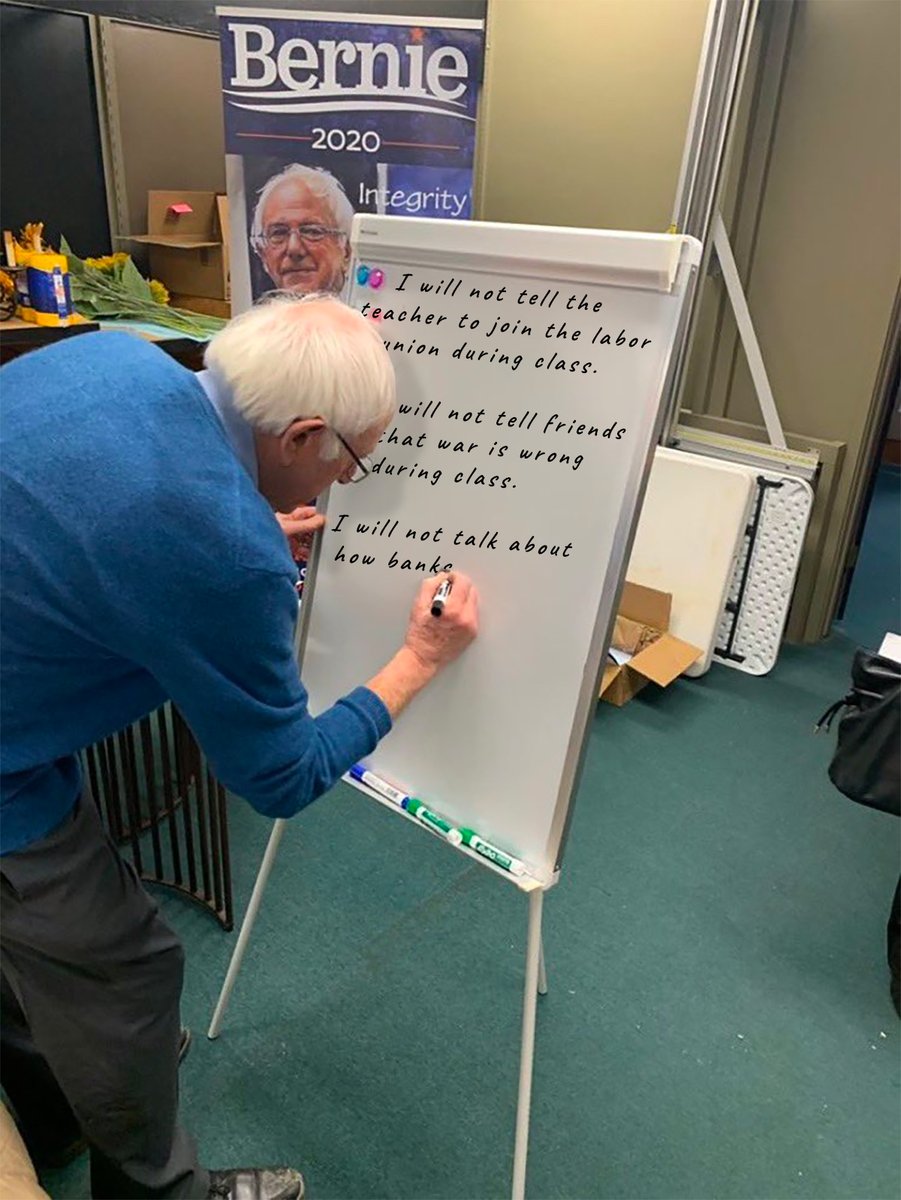 Bernie
2020
Integrity
I will not tell the
teacher to join the labor
union during class.
will not tell friends
that war is wrong
during class.
I will not talk about
how banks